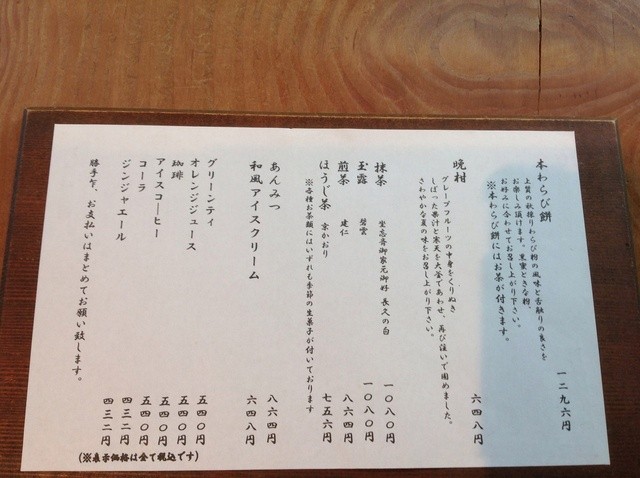 本わらび餅 一二九六円
上質の秋採りわらび粉の風味と舌触りの良さを
お楽しみ頂けます。黒蜜ときな粉、
お好みに合わせてお召し上がり下さい。
※本わらび餅にはお茶が付きます。
晩柑 六四八円
グレープフルーツの中身をくりぬき
しぼった果汁と寒天を大釜であわせ、再び注いで固めました。
さわやかな夏の味をお召し上がり下さい。
抹茶 坐忘斎御家元御好 長久の白 一〇八〇円
玉露 碧雲 一〇八〇円
煎茶 建仁 八六四円
ほうじ茶 京かおり 七五六円
※各種お茶類にはいずれも季節の生菓子が付いております
あんみつ 八六四円
和風アイスクリーム 六四八円
グリーンティ 五四〇円
オレンジジュース 五四〇円
珈琲 五四〇円
アイスコーヒー 五四〇円
コーラ 四三二円
ジンジャエール 四三二円
勝手乍、お支払いはまとめてお願い致します。
(※表示価格は全て税込です)